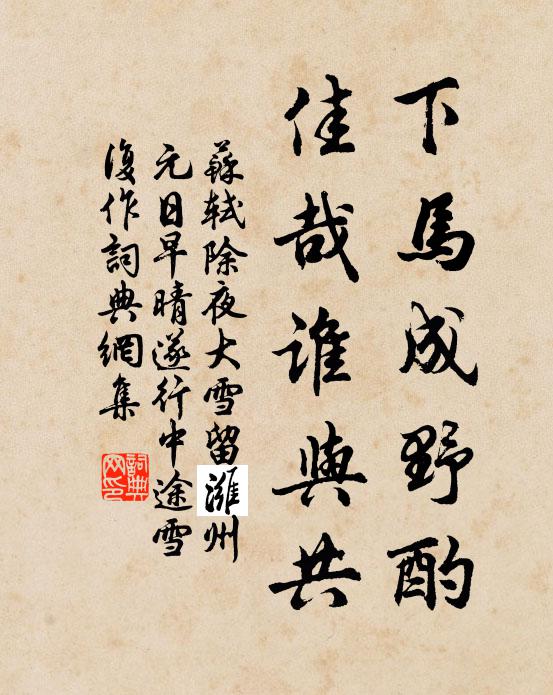 下馬成野酌
佳哉誰與共
蘇軾除夜大雪留濰州
元日早晴遂行中途雪
復作詞典網集
詞典网印